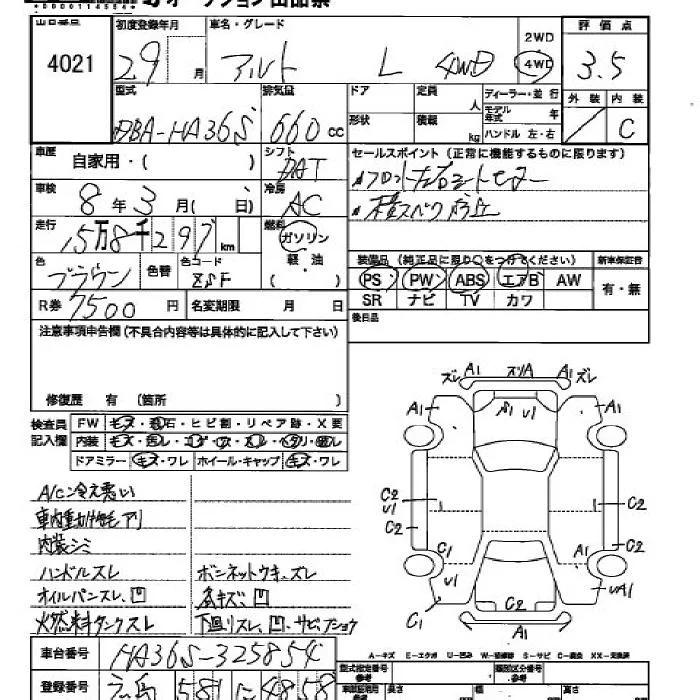 出品番号 初度登録年月 車名・グレード 2WD 評価点
4021 29 月 アルト L 4WD 4WD 3.5
型式 排気量 ドア 定員 ディーラー・並行 外装 内装
DBA-HA36S 660 cc 形状 積載 人 kg モデル年式 年 ハンドル 左・右 C
車歴 自家用・( ) シフト DAT セールスポイント (正常に機能するものに限ります)
車検 8 年 3 月( 日) 冷房 AC
走行 15万8千297 km 燃料 ガソリン 軽油 ( )
色 ブラウン 色替 色コード ZSF
装備品 (純正品に限り○をつけてください) 新車保証書
PS PW ABS エアB AW 有・無
SR ナビ TV カワ
R券 7500 円 名変期限 月 日 後日品
注意事項申告欄(不具合内容等は具体的に記入して下さい)
修復歴 有 (箇所 )
検査員記入欄 FW キズ・飛石・ヒビ割・リペア跡・X要
内装 キズ・汚レ・コゲ・穴・スレ・
ドアミラー キズ・ワレ ホイール・キャップ キズ・ワレ
ズレ A1 スリA A1 ズレ
A1 A1 U1 A1
C2 U1 C2
C2 C2
C1 A1
U1 UA1
C1 C2
A1
A/C冷え悪い
車内動物毛アリ
内装シミ
ハンドルスレ ボンネットウキ、ズレ
オイルパンスレ、凹
火燃料タンクスレ 下廻リスレ、凹・サビフショウ
A-キズ E-エクボ U-凹み W-補修跡 S-サビ C-腐食 XX-交換済
車台番号 HA36S-325854
登録番号 広島 581 に 4858
型式指定番号 参考 類別区分番号 参考
長さ 幅 高さ